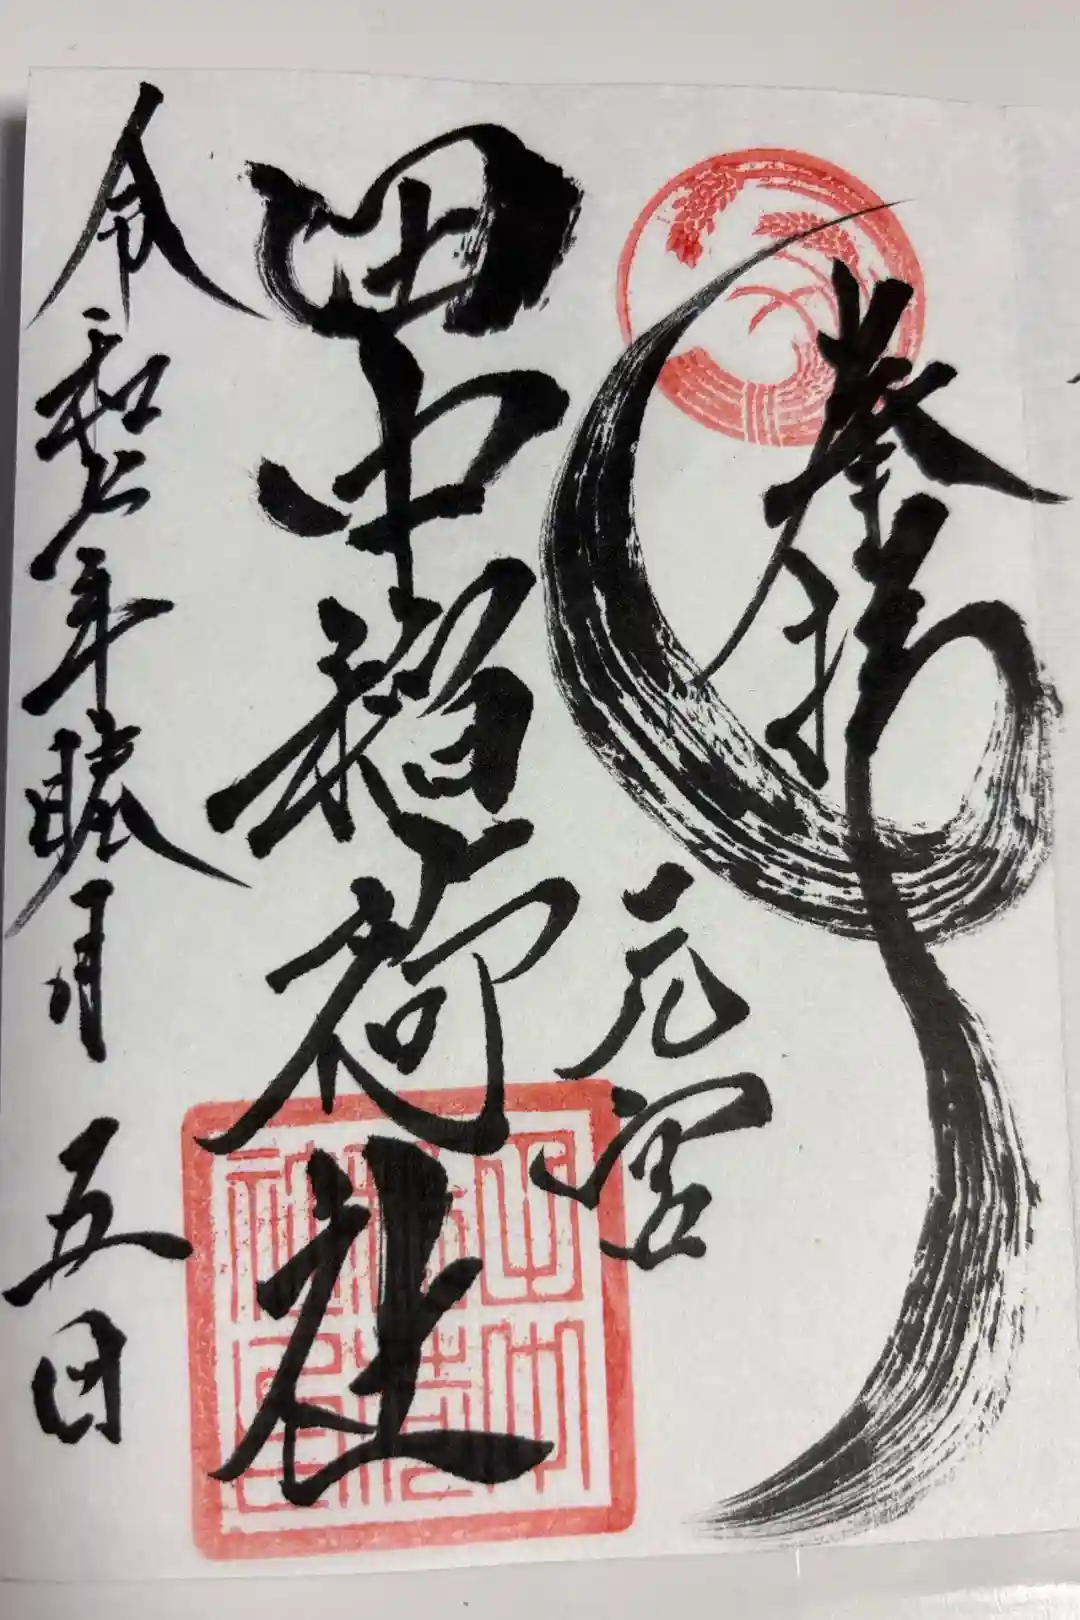 奉拝
元宮
田中稲荷社
令和六年睦月五日